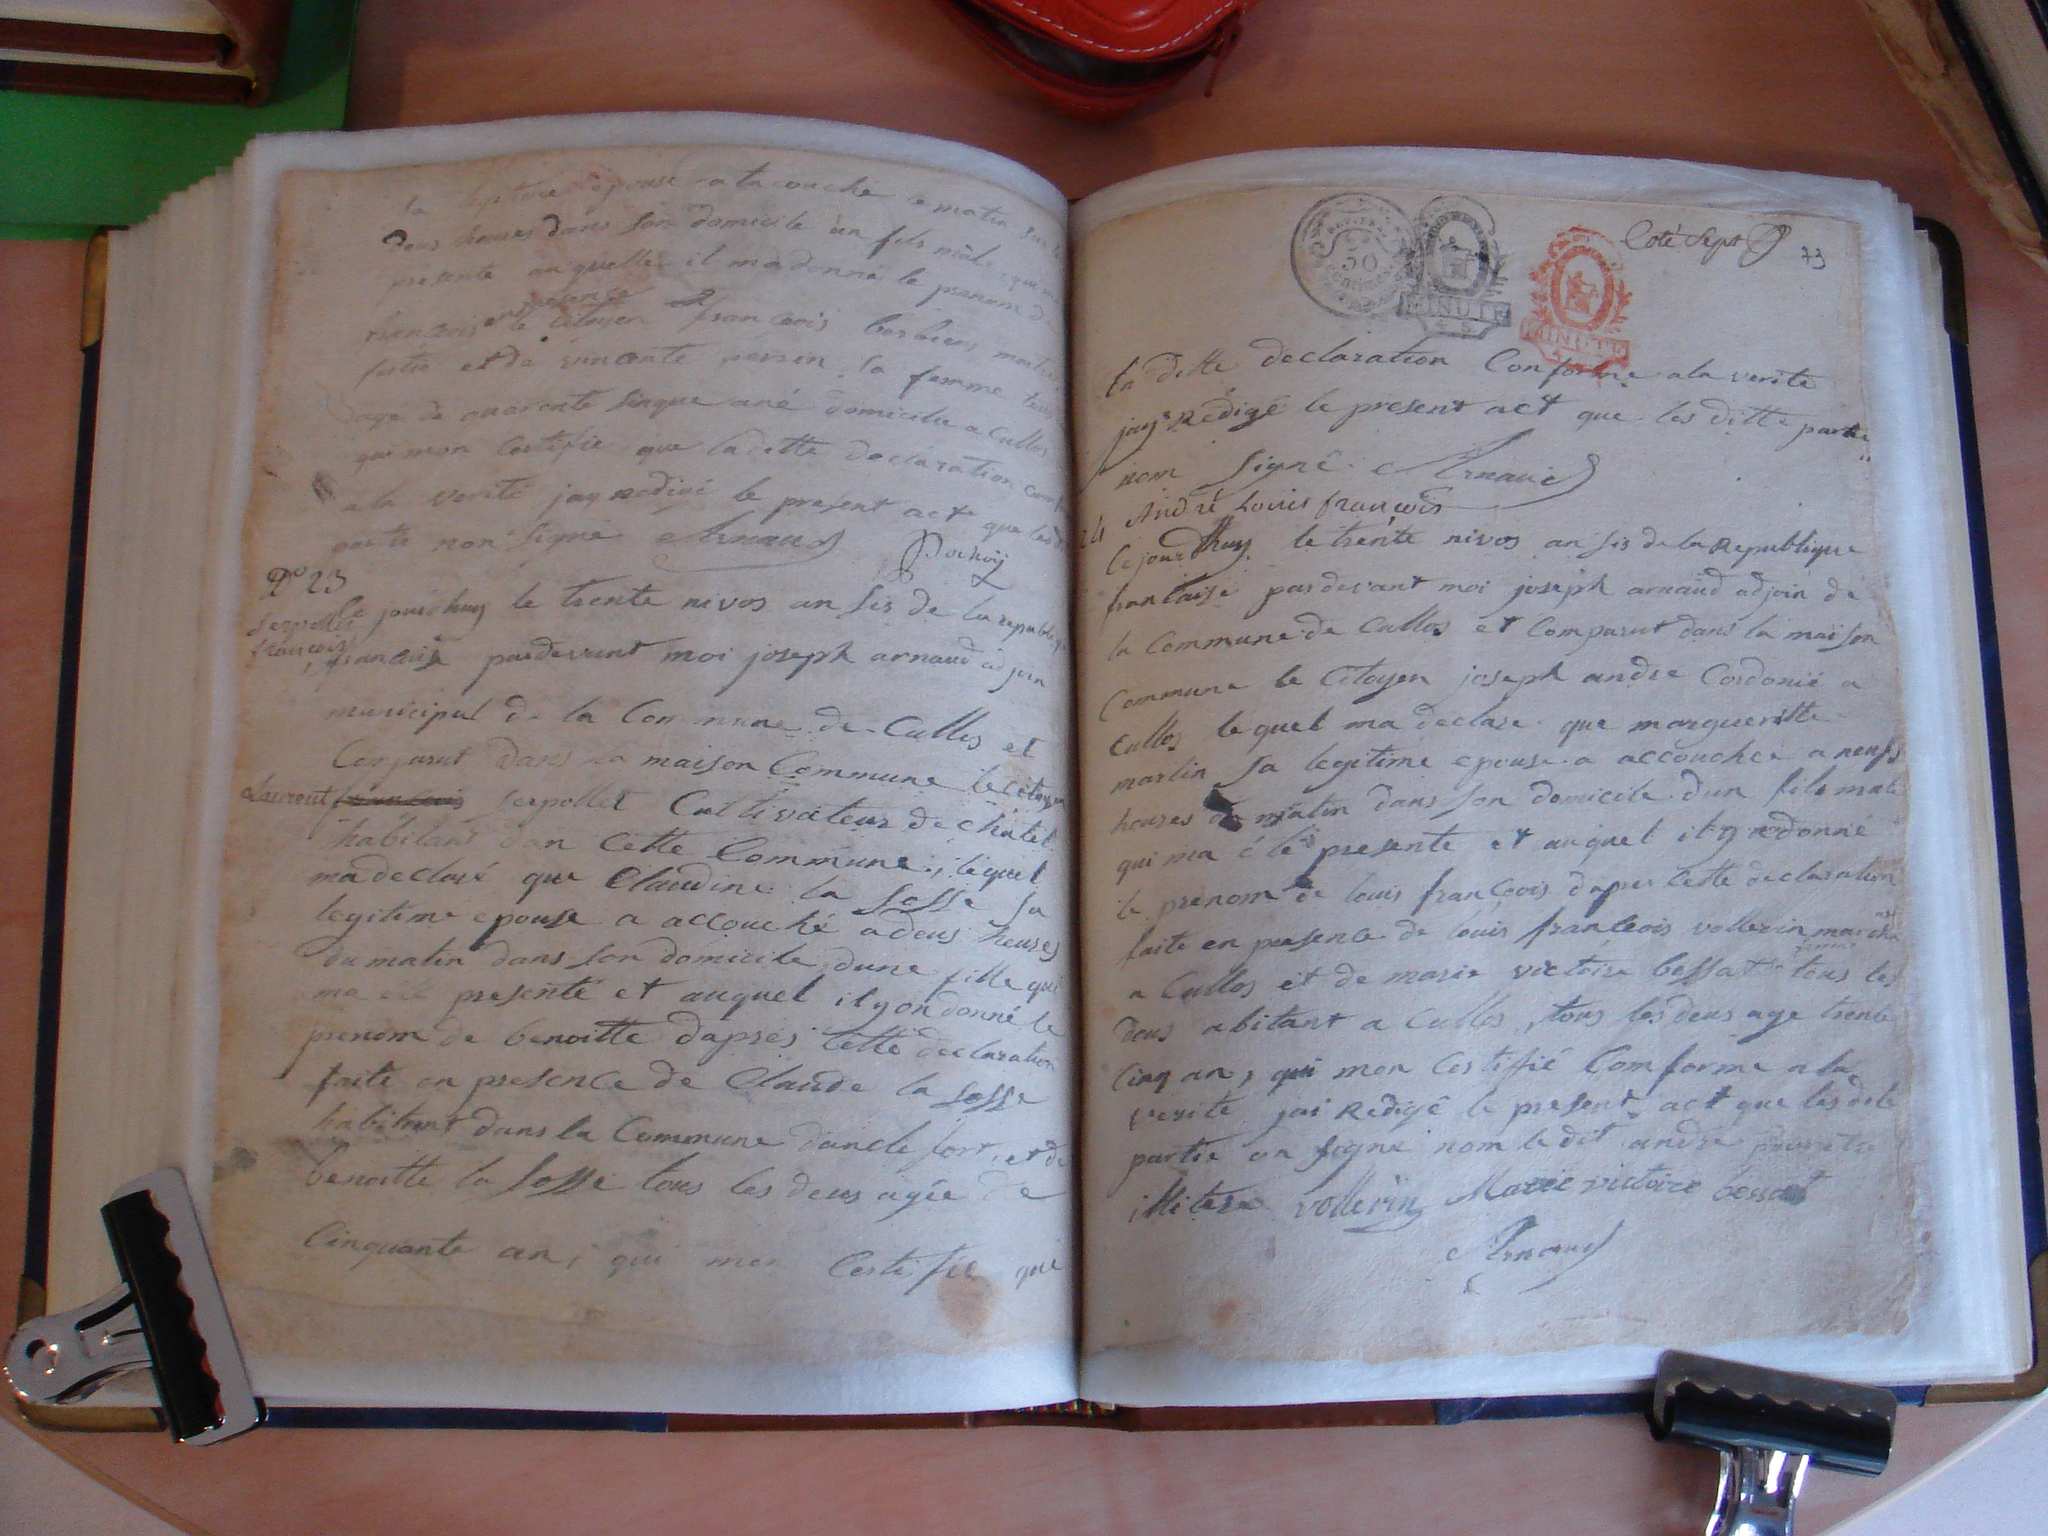 la épouse a tacouché ce matin sur le
deus heures dans son domicile un fils mâle qui ma
présenté auquelle il madonné le prenom de
francois en presence le citoyen francois
et de персон sa femme tous
age de quarente sinque ané domicilie a Cullos
qui mon Certifié que ladette declaration
a la verité jay redigé le present act que les
partie non Signé Arnaud
No 23
Serpollet
francois
Ce jourdhuy le trente nivos an sis de la republique
francaise pardevant moi joseph arnaud adjoin
municipal de la Commune de Cullos et
Comparut dans la maison Commune le citoyen
Laurent francois serpollet Cultivateur de chatel
habitant dan Cette Commune, lequel
ma declaré que Claudine la fosse sa
legitime epouse a accouché a deus heures
du matin dans son domicile dune fille qui
ma été presenté et auquel il y on donné le
prenom de benoitte dapres cette declaration
faite en presence de Claude la fosse
habitant dans la Commune danclefort, et de
benoitte la fosse tous les deus agée de
Cinquante an, qui mon Certifié que
Coté Sept
73
50
centimes
MINUTE
MINUTE
la ditte declaration Conforme a la verité
jay Redigé le present act que les ditte partie
nom Signé Arnaud
24 André Louis françois
Cejourdhuy le trente nivos an sis de la Republique
francaise pardevant moi joseph arnaud adjoin de
la Commune de Cullos et Comparut dans la maison
Commune le Citoyen joseph andre Cordonié a
Cullos lequel ma declare que margueritte
martin sa legitime epouse a accouchée a neufs
heures du matin dans son domicile dun fils male
qui ma été presenté et auquel il y adonné
le prenom de louis francois dapres cette declaration
faite en presence de louis francois vollerin marchant
a Cullos et de marie victoire bessat femme tous les
deus abitant a Cullos, tous les deus age trente
Cinq an, qui mon Certifié Comforme a la
verite jai Redigé le present act que les dite
partie on signé nom le dit andré pour etre
illitere vollerin Marie victoire bessat
Arnaud